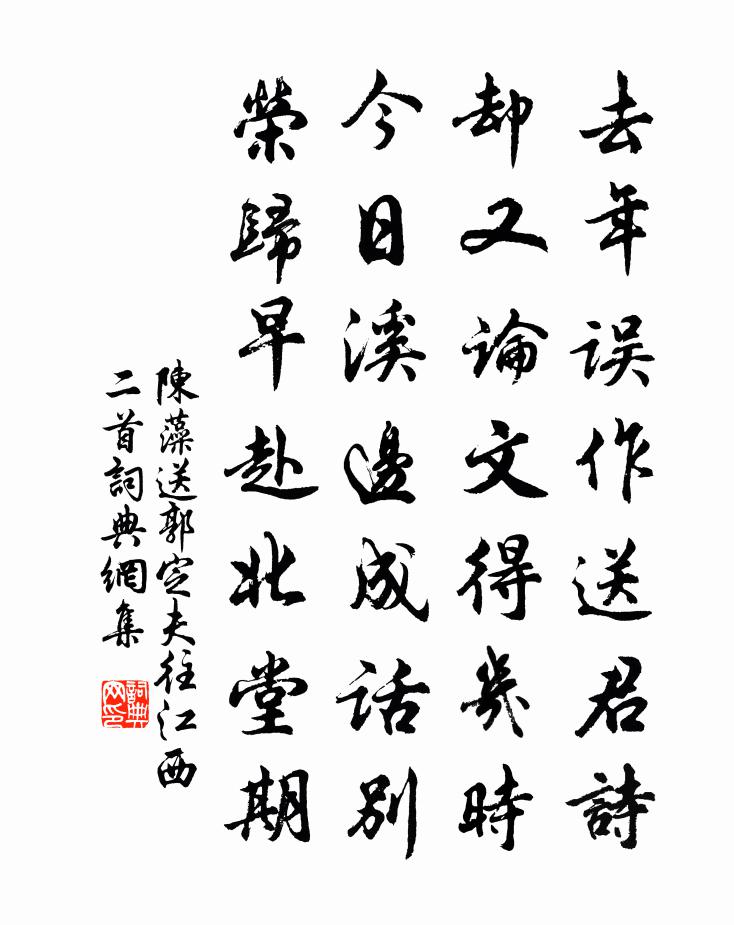 去年误作送君詩
却又論文得幾時
今日溪邊成话别
榮歸早赴北堂期
陳藻送郭定夫往江西
二首詞典網集
詞典
网印